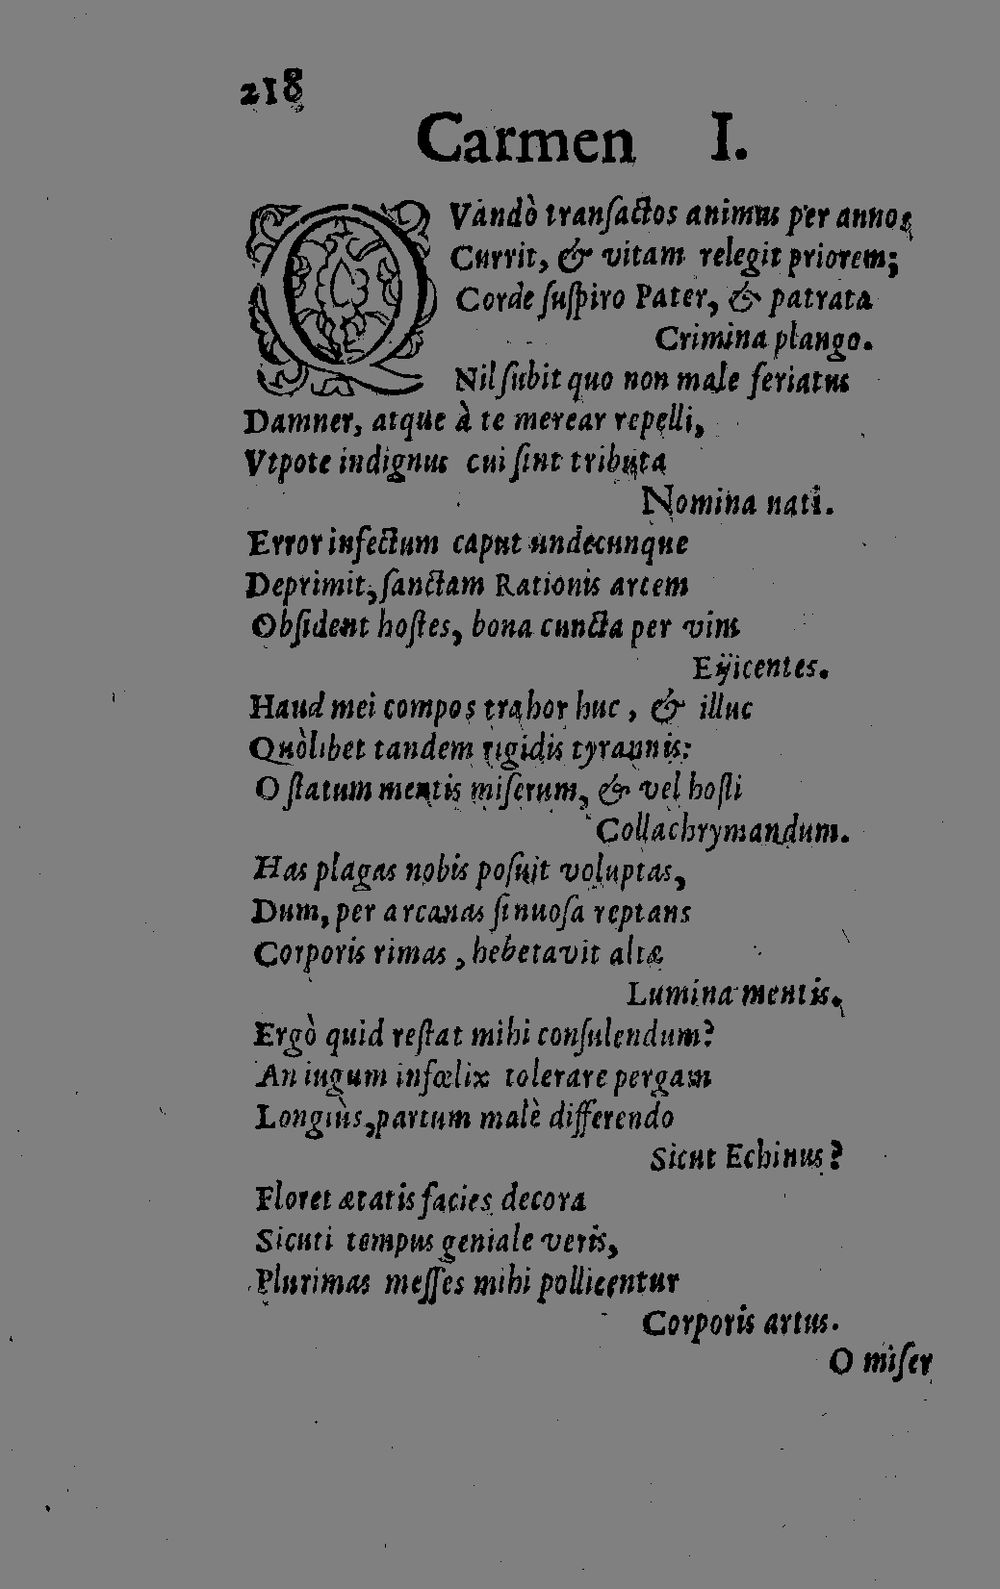 218
Carmen I.
QVandò transactos animus per annos
Currit, & vitam relegit priorem;
Corde suspiro Pater, & patrata
Crimina plango.
Nil subit quo non male feriatus
Damner, atque à te merear repelli,
Vtpote indignus cui sint tributa
Nomina nati.
Error infectum caput undecunque
Deprimit, sanctam Rationis arcem
Obsident hostes, bona cuncta per vim
Eÿicentes.
Haud mei compos trahor huc, & illuc
Quòlibet tandem rigidis tyrannis:
O statum mentis miserum, & vel hosti
Collachrymandum.
Has plagas nobis posuit voluptas,
Dum, per arcanas sinuosa reptans
Corporis rimas, hebetavit altæ
Lumina mentis.
Ergò quid restat mihi consulendum?
An iugum infœlix tolerare pergam
Longiùs, partum malè differendo
Sicut Echinus?
Floret ætatis facies decora
Sicuti tempus geniale veris,
Plurimas messes mihi pollicentur
Corporis artus.
O miser